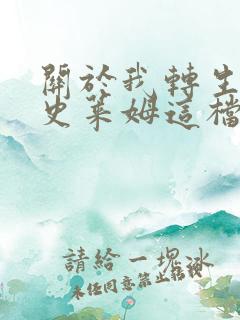 關於我轉生
史萊姆這檔
請給一塊冰
未任同意禁止轉載